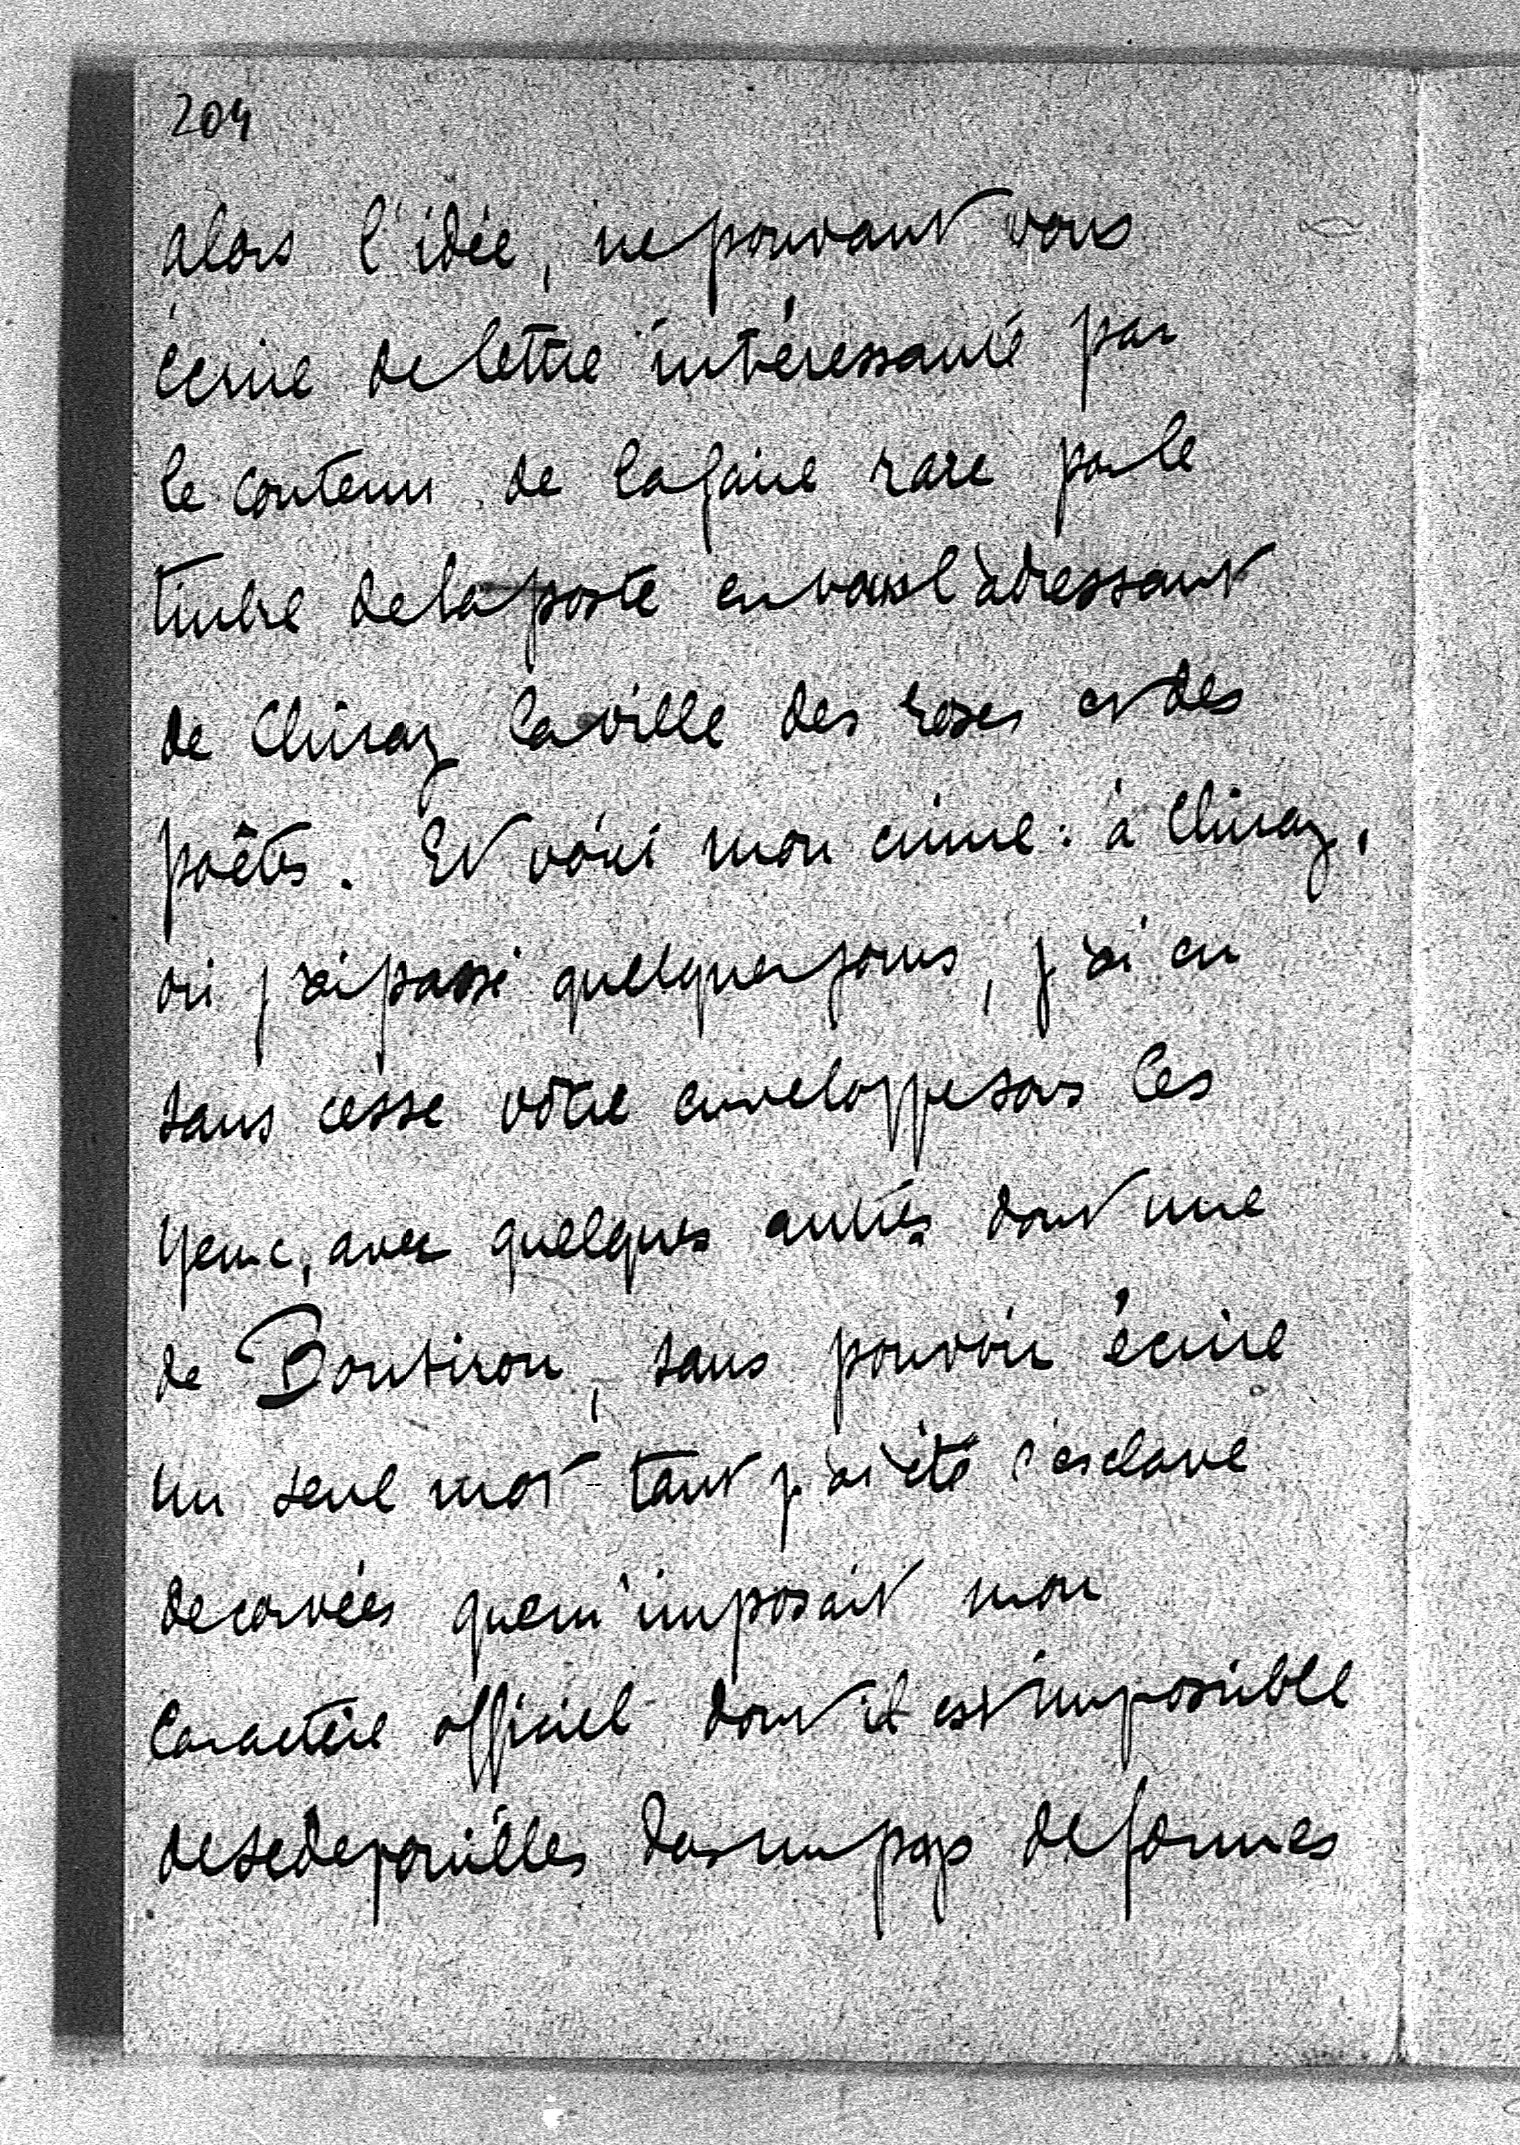 204
alors l'idée, ne pouvant vous
écrire de lettre intéressante par
le contenu de la faire rare par le
timbre de la poste en vous l'adressant
de Chiraz la ville des roses et des
poêtes. Et voici mon crime : à Chiraz,
où j'ai passé quelques jours, j'ai eu
sans cesse votre enveloppe sous les
yeux, avec quelques autres dont une
de Boutiron, sans pouvoir écrire
un seul mot tant j'ai été l'esclave
de corvées que m'imposait mon
caractère officiel dont il est impossible
de se dépouiller dans un pays de formes